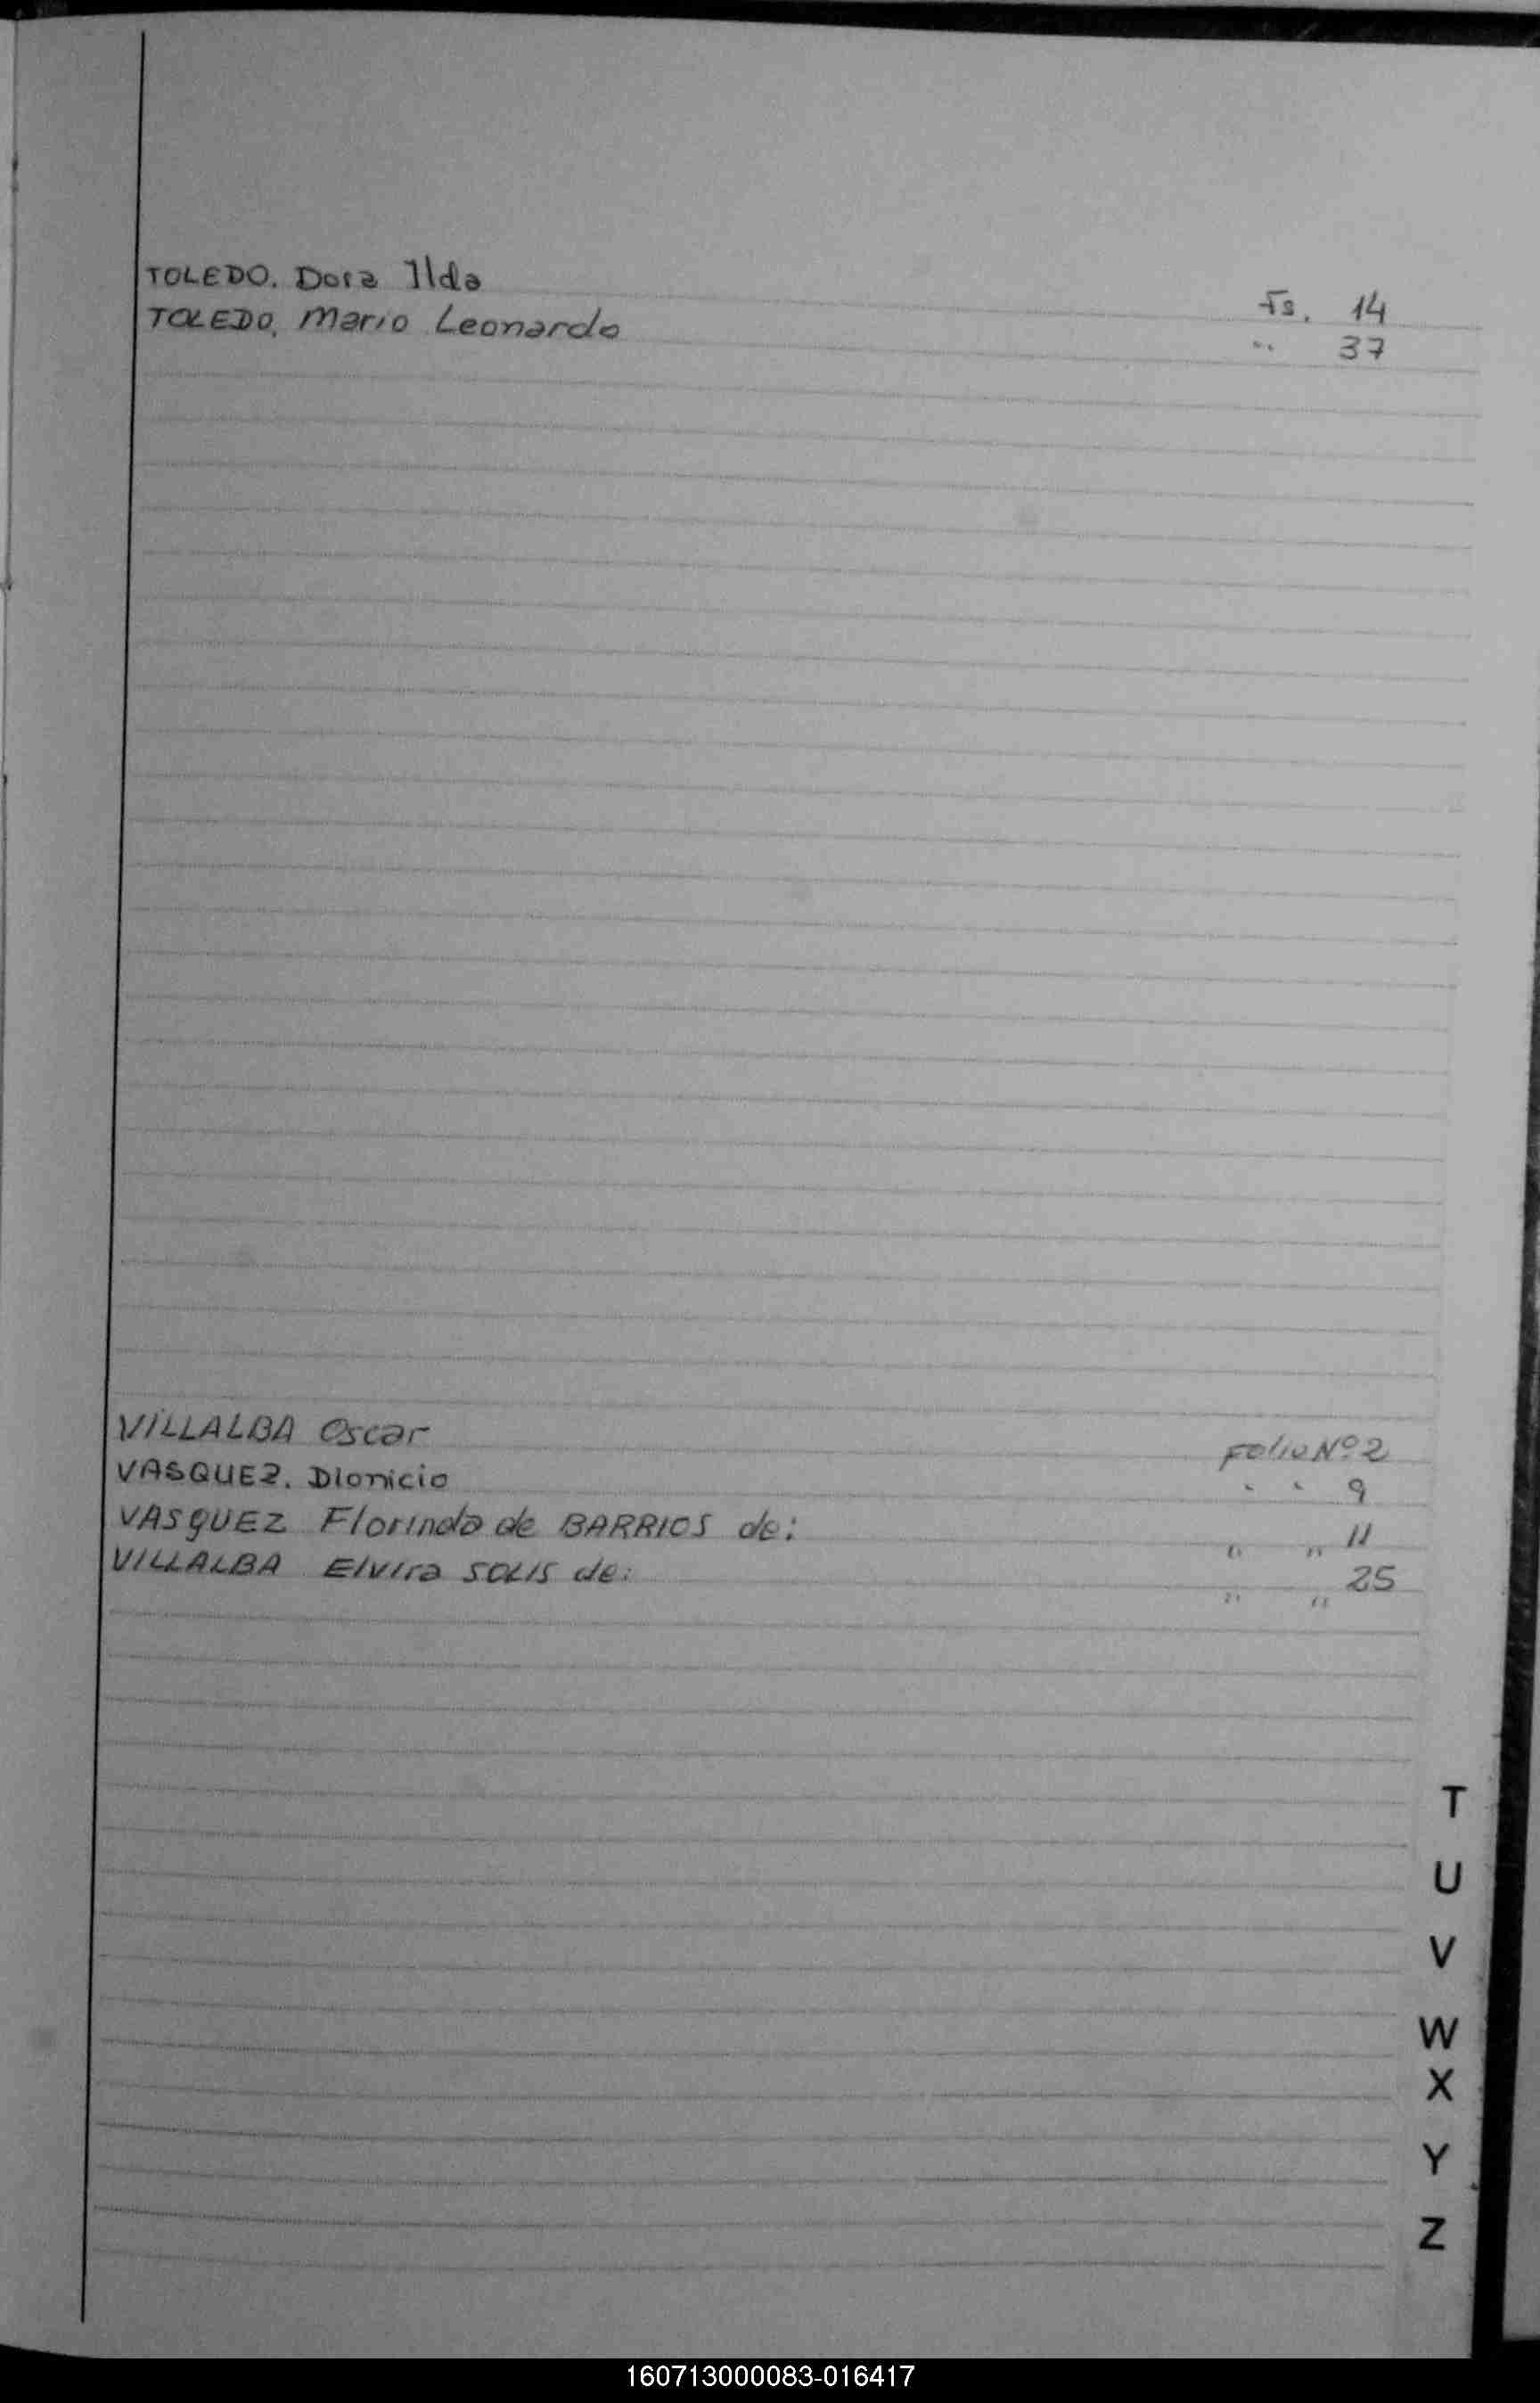 TOLEDO. Dora Ilda Fs. 14
TOLEDO, Mario Leonardo " 37
VILLALBA Oscar Folio Nº 2
VASQUEZ. Dionicio " " 9
VASQUEZ Florinda de BARRIOS de: " " 11
VILLALBA Elvira SOLIS de: " " 25
T
U
V
W
X
Y
Z
160713000083-016417